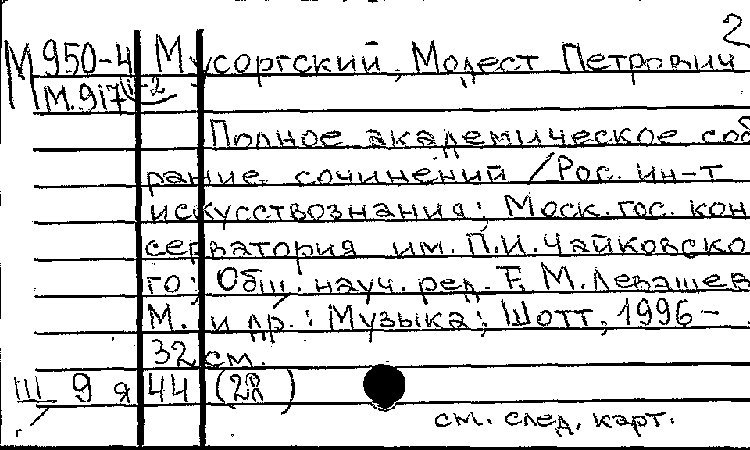 2
М 950-4 Мусоргский, Модест Петрович
М.917 II-2
Полное академическое соб
рание сочинений / Рос. ин-т
искусствознания; Моск. гос. кон
серватория им. П.И. Чайковско
го; Общ. науч. ред. Е. М. Левашев
М. и др.: Музыка; Шотт, 1996 -
32 см.
Ш 9 я 44 (28 )
см. след. карт.